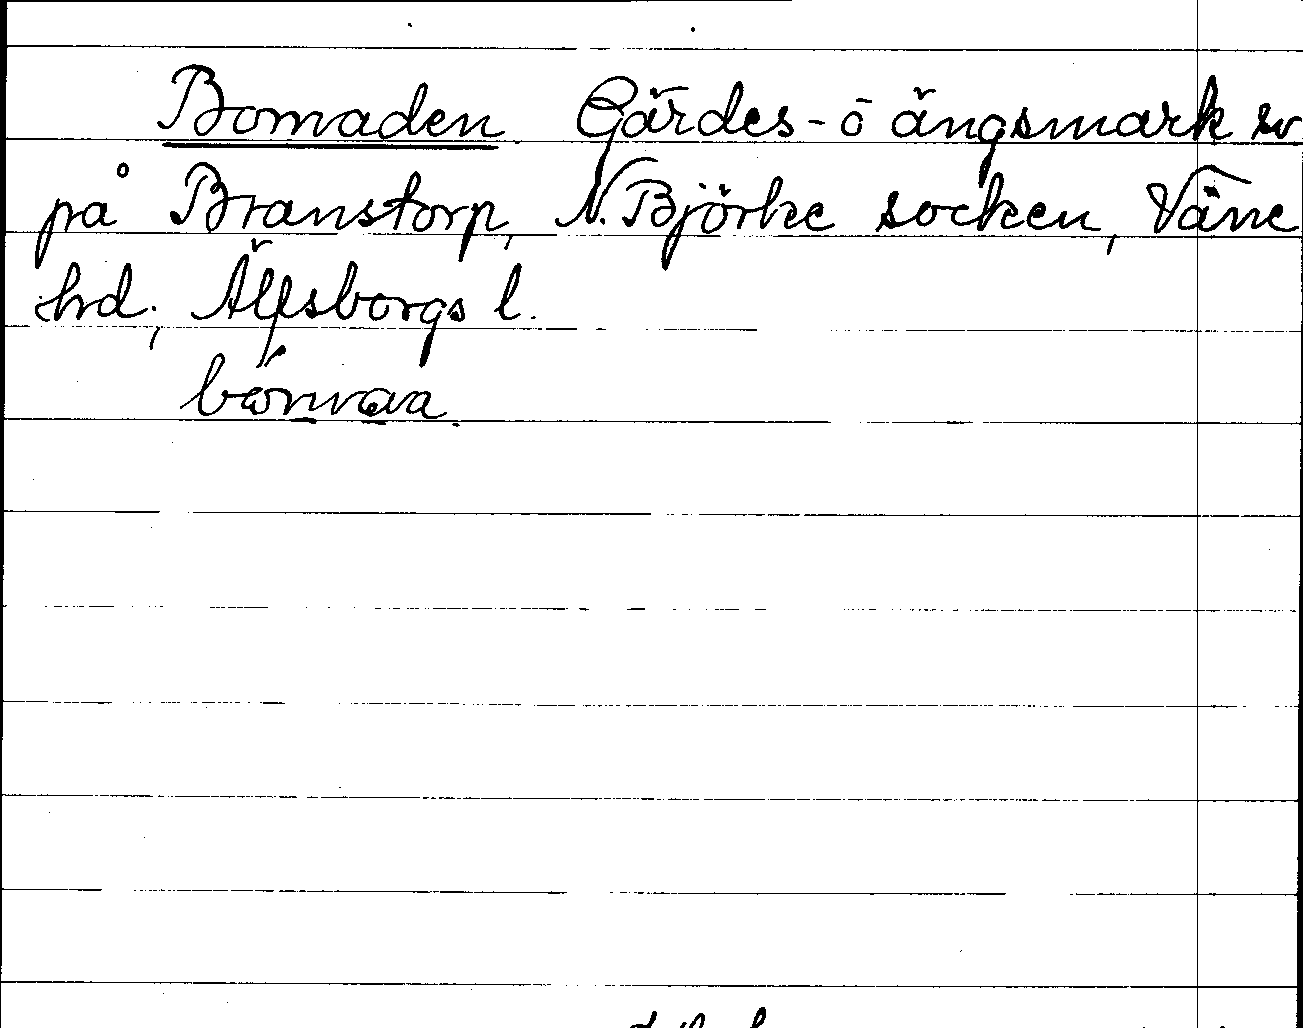 Bomaden Gärdes- o ängsmark sv
på Branstorp, N. Björke socken, Väne
hrd, Älfsborgs l.